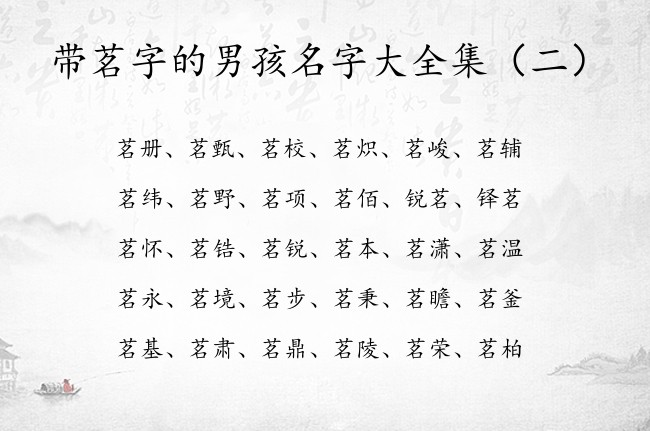 带茗字的男孩名字大全集（二）
茗册、茗甄、茗校、茗炽、茗峻、茗辅
茗纬、茗野、茗项、茗佰、锐茗、铎茗
茗怀、茗锆、茗锐、茗本、茗潇、茗温
茗永、茗境、茗步、茗秉、茗瞻、茗釜
茗基、茗肃、茗鼎、茗陵、茗荣、茗柏